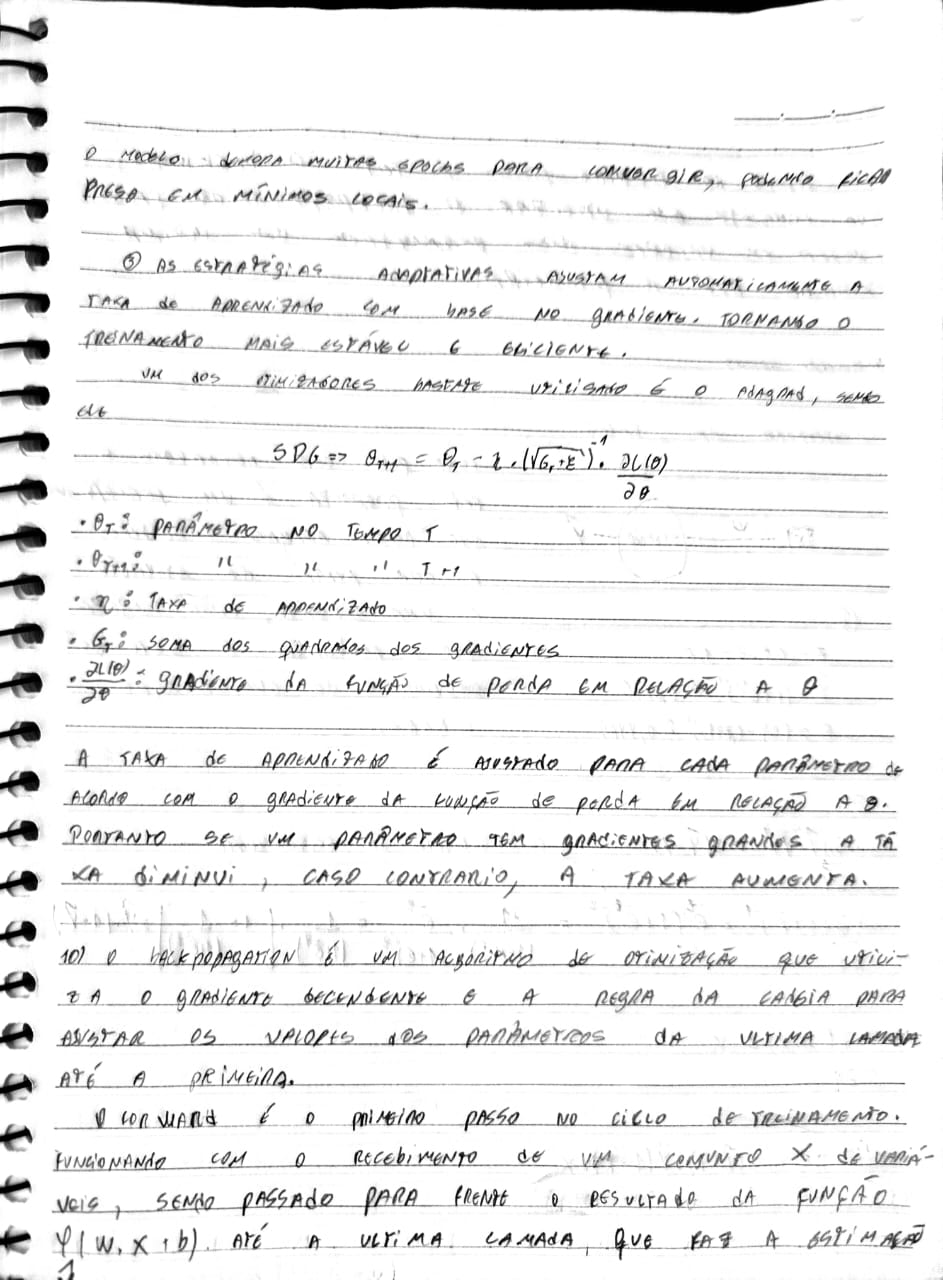 O MODELO DEMORA MUITAS EPOCAS PARA CONVERGIR, PODENDO FICAR
PRESO EM MÍNIMOS LOCAIS.
AS ESTRATÉGIAS ADAPTATIVAS AJUSTAM AUTOMATICAMENTE A
TAXA de APRENDIZADO COM BASE NO GRADIENTE. TORNANDO O
TREINAMENTO MAIS ESTÁVEL E EFICIENTE.
UM DOS OTIMIZADORES BASTATE UTILISADO É O ADAGRAD, SENDO
ELE
SDG => θ_{T+1} = θ_T - η . (√(G_T + ε))^{-1} . ∂L(θ)/∂θ
• θ_T : PARÂMETRO NO TEMPO T
• θ_{T+1} : " " " T+1
• η : TAXA de APRENDIZADO
• G_T : SOMA dos QUADRADOS dos GRADIENTES
• ∂L(θ)/∂θ : GRADIENTE da FUNÇÃO de PERDA EM RELAÇÃO A θ
A TAXA de APRENDIZADO É AJUSTADO PARA CADA PARÂMETRO de
ACORDO COM O GRADIENTE da FUNÇÃO de PERDA EM RELAÇÃO A θ.
PORTANTO SE UM PARÂMETRO TEM GRADIENTES GRANDES A TÁ
XA diMINUI, CASO CONTRARIO, A TAXA AUMENTA.
10) O BACKPOPAGATION É UM ALGORITMO DE OTIMIZAÇÃO QUE UTILI-
ZA O GRADIENTE DECENDENTE E A REGRA DA CADEIA PARA
AJUSTAR OS VALORES dos PARÂMETROS DA ULTIMA CAMADA
ATÉ A PRIMEIRA.
O FORWARD É O PRIMEIRO PASSO NO CICLO de TREINAMENTO.
FUNCIONANDO COM O RECEBIMENTO DE UM CONJUNTO X de VARIÁ-
VEIS, SENDO PASSADO PARA FRENTE O RESULTADO DA FUNÇÃO
φ(W.X+b) ATÉ A ULTIMA CAMADA, QUE FAZ A ESTIMAÇÃO